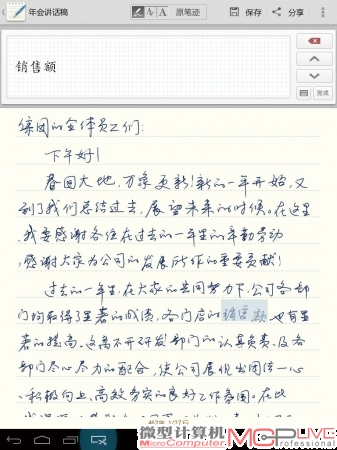 年会讲话稿
原笔迹
保存
分享
销售额
完成
集团的全体员工们:
下午好!
春回大地,万象更新!新的一年开始,又
到了我们总结过去,展望未来的时候。在这里
我要感谢各位在过去的一年里的辛勤劳动
,感谢大家为公司的发展所作的重要贡献!
过去的一年里,在大家的共同努力下,公司各部
门均取得了显著的成绩,各门店的销售额也有显
著的提高。这离不开研发部门的认真负责,及各
部门尽心尽力的配合,使公司展现出团结一心
、积极向上,高效务实的良好工作氛围。在此
微型计算机
MicroComputer
MCPLIVE
Professional